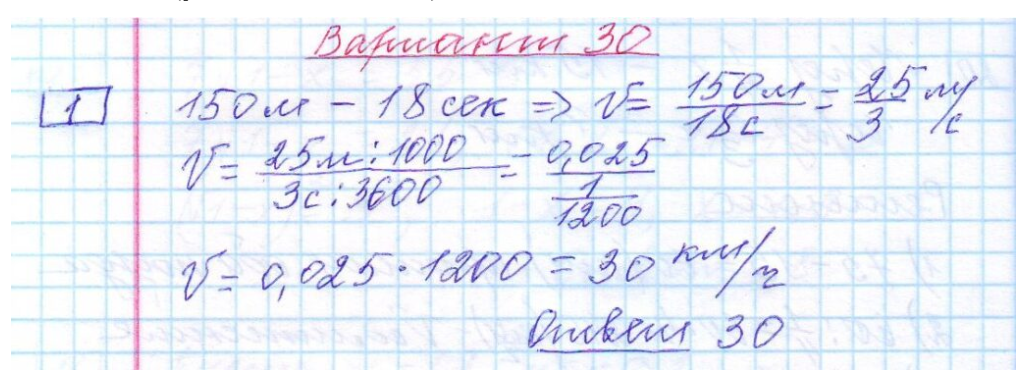 Вариант 30
1 150м – 18 сек => v = 150м/18с = 25/3 м/с
v = 25м:1000/3с:3600 = 0,025/(1/1200)
v = 0,025·1200 = 30 км/ч
Ответ 30